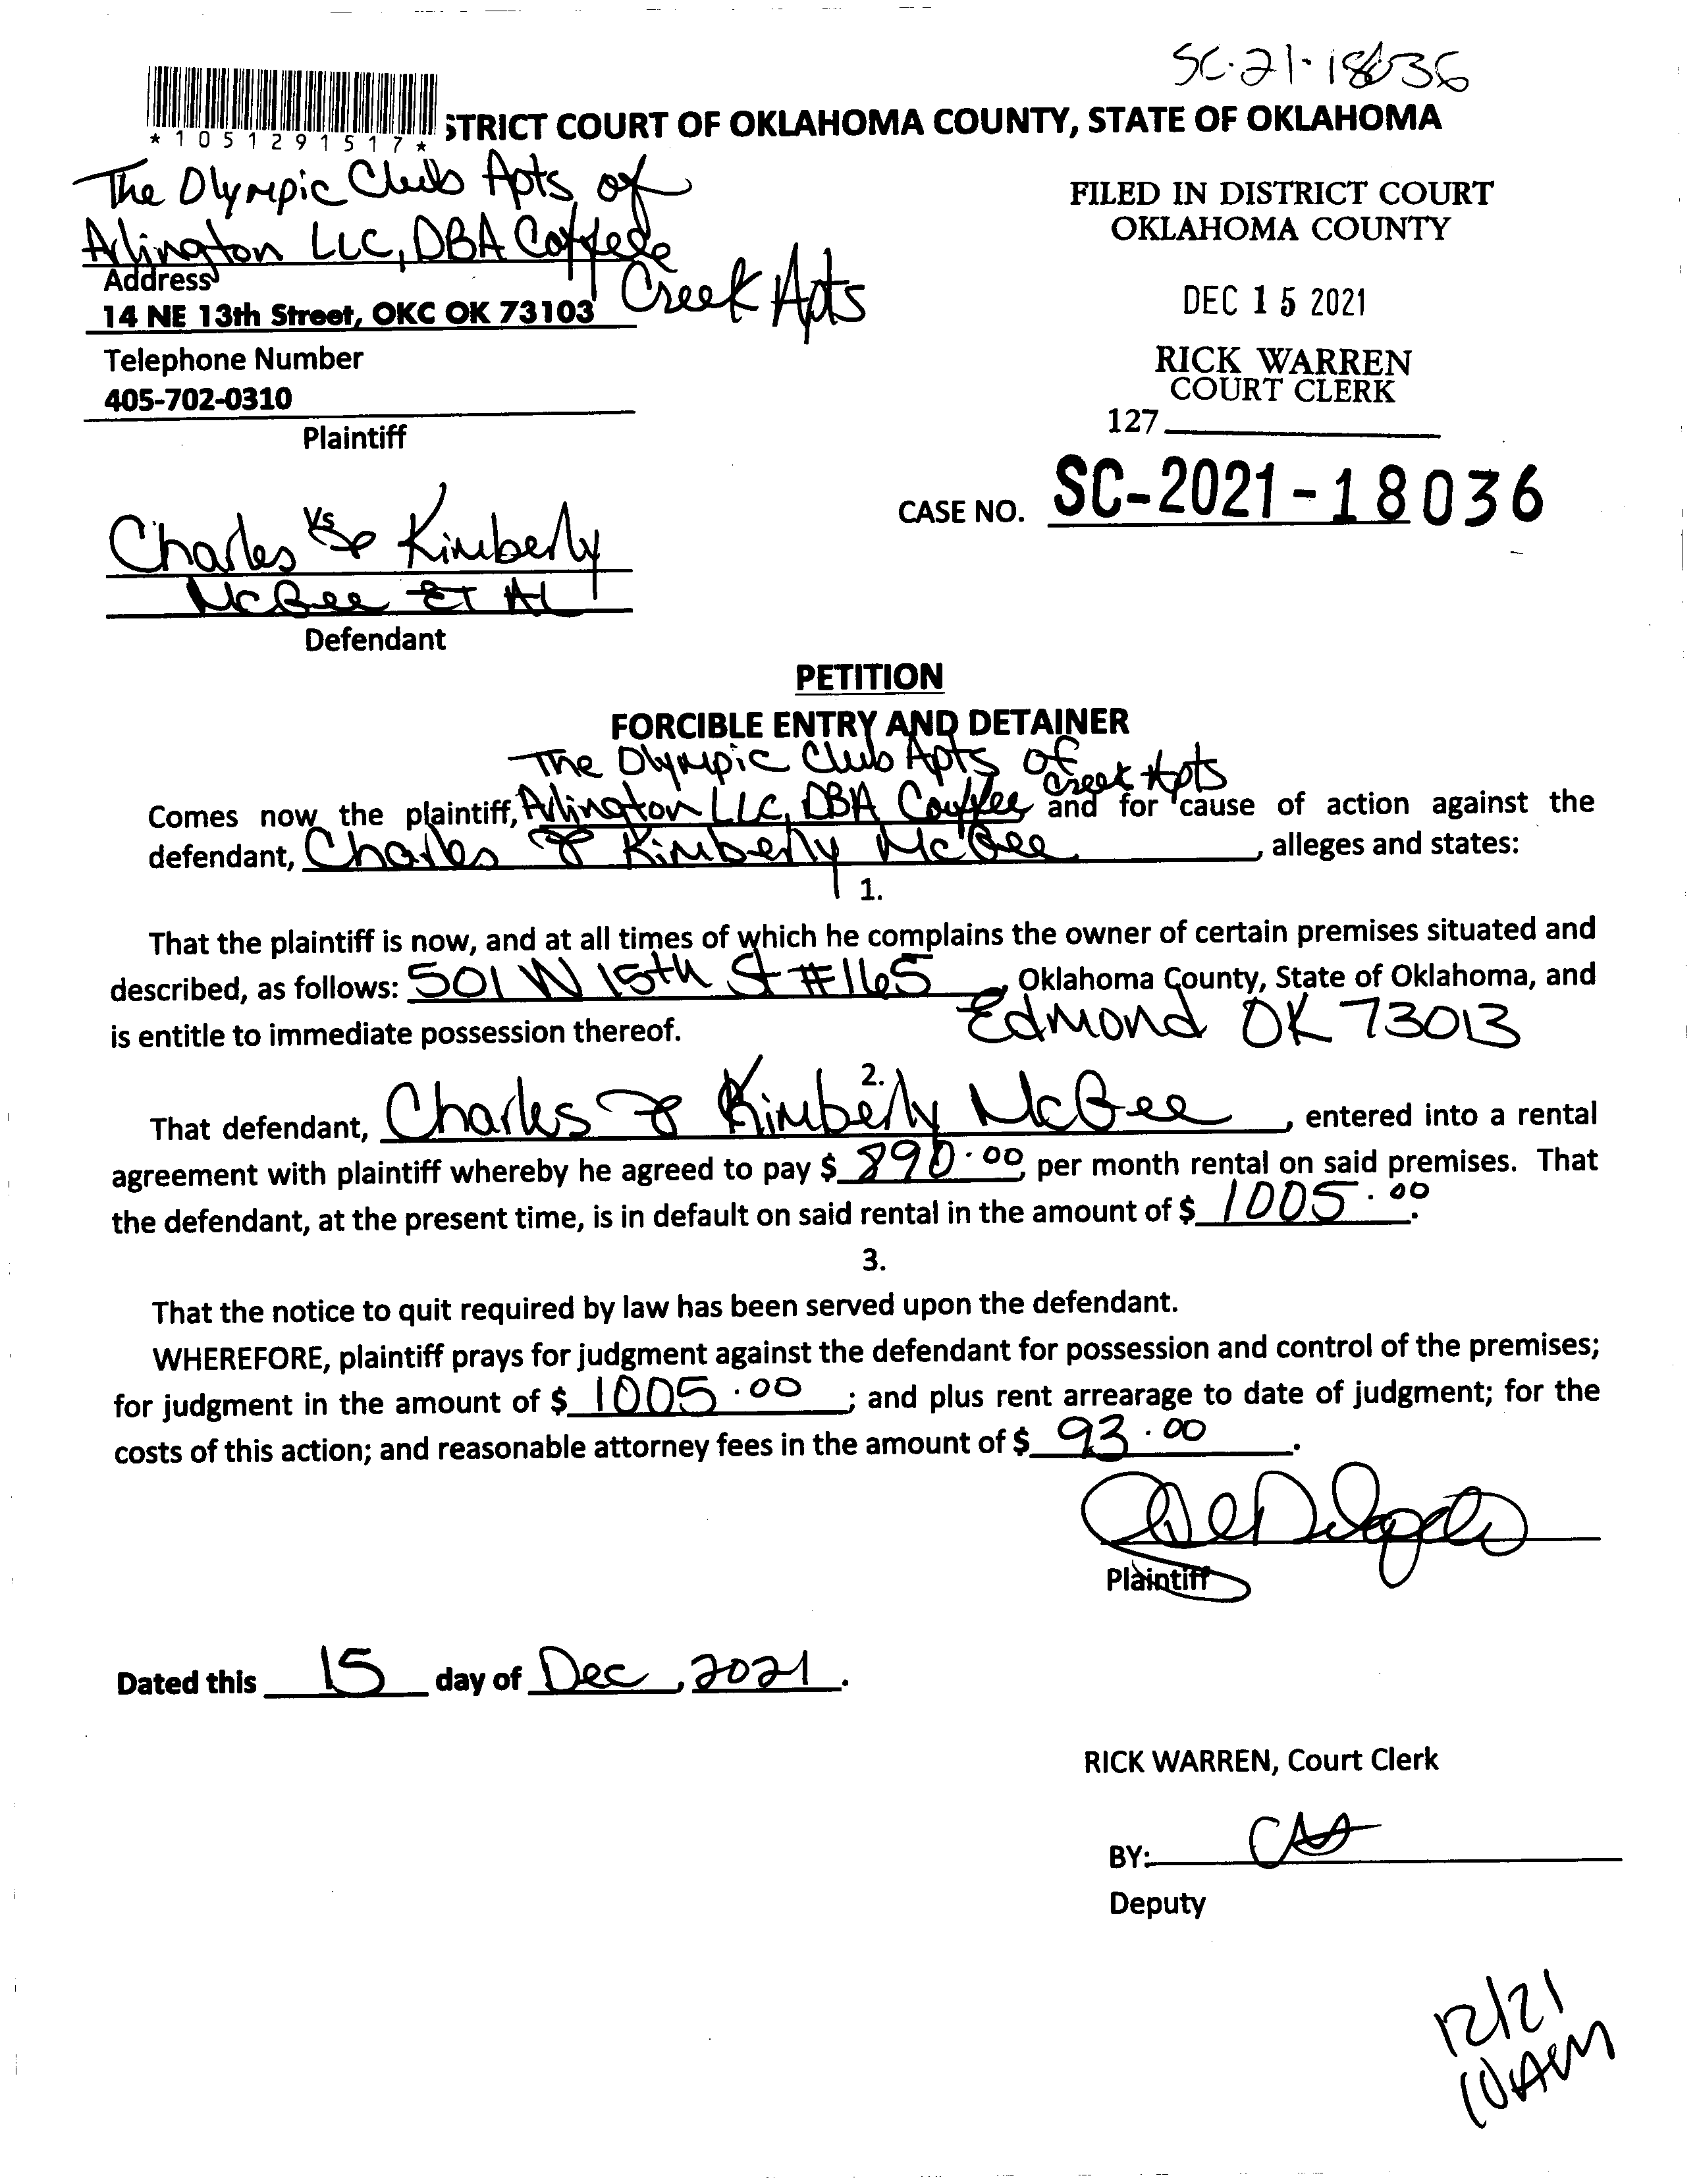 SC-21-18036
*1051291517*
STRICT COURT OF OKLAHOMA COUNTY, STATE OF OKLAHOMA
The Olympic Club Apts of
Arlington LLC, DBA Coffee
Creek Apts
Address
14 NE 13th Street, OKC OK 73103
Telephone Number
405-702-0310
Plaintiff
FILED IN DISTRICT COURT
OKLAHOMA COUNTY
DEC 15 2021
RICK WARREN
COURT CLERK
127
CASE NO. SC-2021-18036
Vs
Charles & Kimberly
McGee ET AL
Defendant
PETITION
FORCIBLE ENTRY AND DETAINER
The Olympic Club Apts of
Creek Apts
Comes now the plaintiff, Arlington LLC, DBA Couffee and for cause of action against the
defendant, Charles & Kimberly McGee, alleges and states:
1.
That the plaintiff is now, and at all times of which he complains the owner of certain premises situated and
described, as follows: 501 W 15th St #165, Oklahoma County, State of Oklahoma, and
is entitle to immediate possession thereof. Edmond OK 73013
2.
That defendant, Charles & Kimberly McGee, entered into a rental
agreement with plaintiff whereby he agreed to pay $ 890.00, per month rental on said premises. That
the defendant, at the present time, is in default on said rental in the amount of $ 1005.00.
3.
That the notice to quit required by law has been served upon the defendant.
WHEREFORE, plaintiff prays for judgment against the defendant for possession and control of the premises;
for judgment in the amount of $ 1005.00; and plus rent arrearage to date of judgment; for the
costs of this action; and reasonable attorney fees in the amount of $ 93.00.
Plaintiff
Dated this 15 day of Dec, 2021.
RICK WARREN, Court Clerk
BY:
Deputy
12/21
10AM